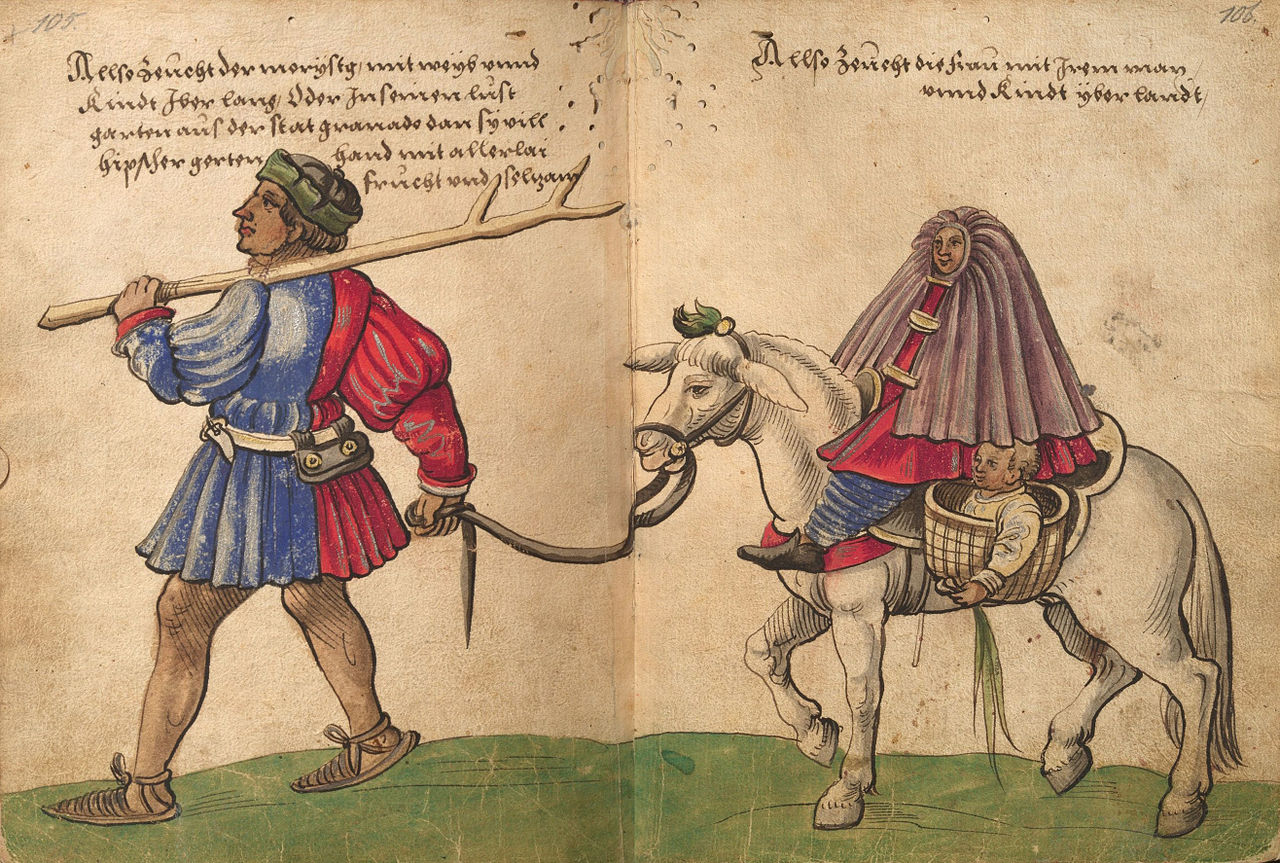 105.
Allso zeücht der morystg / mit weyb vnnd
Kindt Iber lang / Oder In seinen lust
garten aüs der stat granado dan sy vill
hipscher gerten hand mit allerlai
frücht vnd selzam
106.
Allso zeücht die fraü mit Irem man
vnnd Kindt yber landt /